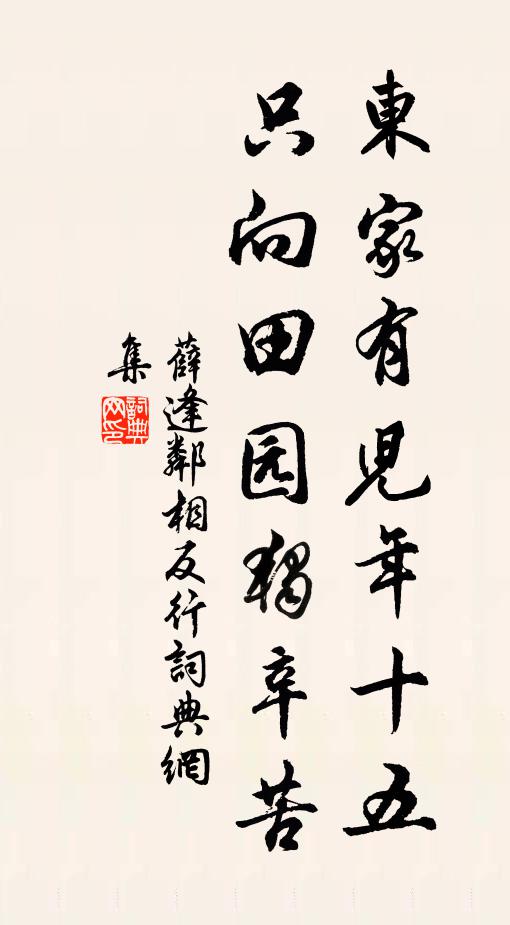 東家有児年十五
只向田园獨辛苦
薛逢鄰相反行詞典網
集
詞典网印